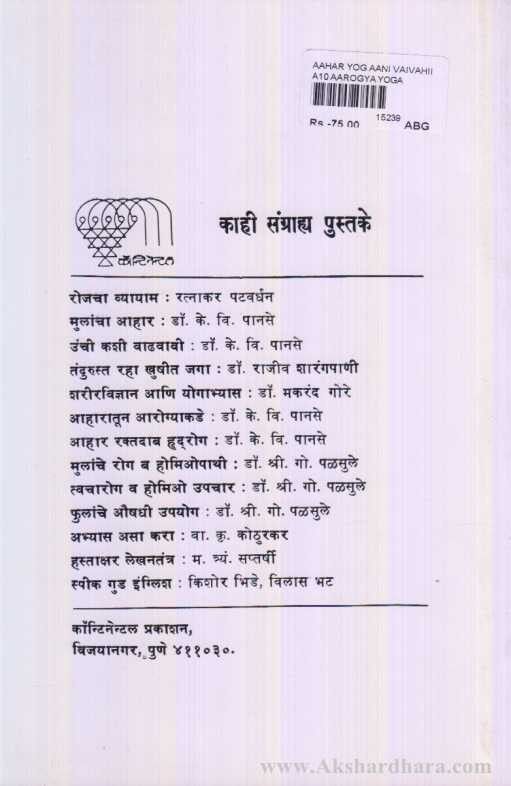 AAHAR YOG AANI VAIVAHII
A10 AAROGYA YOGA
Rs -75.00 15239 ABG
कॉन्टिनेन्टल
काही संग्राह्य पुस्तके
रोजचा व्यायाम : रत्नाकर पटवर्धन
मुलांचा आहार : डॉ. के. वि. पानसे
उंची कशी वाढवावी : डॉ. के. वि. पानसे
तंदुरुस्त रहा खुषीत जगा : डॉ. राजीव शारंगपाणी
शरीरविज्ञान आणि योगाभ्यास : डॉ. मकरंद गोरे
आहारातून आरोग्याकडे : डॉ. के. वि. पानसे
आहार रक्तदाब हृद्‌रोग : डॉ. के. वि. पानसे
मुलांचे रोग व होमिओपाथी : डॉ. श्री. गो. पळसुले
त्वचारोग व होमिओ उपचार : डॉ. श्री. गो. पळसुले
फुलांचे औषधी उपयोग : डॉ. श्री. गो. पळसुले
अभ्यास असा करा : वा. कृ. कोठुरकर
हस्ताक्षर लेखनतंत्र : म. त्र्यं. सप्तर्षी
स्पीक गुड इंग्लिश : किशोर भिडे, विलास भट
कॉन्टिनेन्टल प्रकाशन,
विजयानगर, पुणे ४११०३०.
www.Akshardhara.com